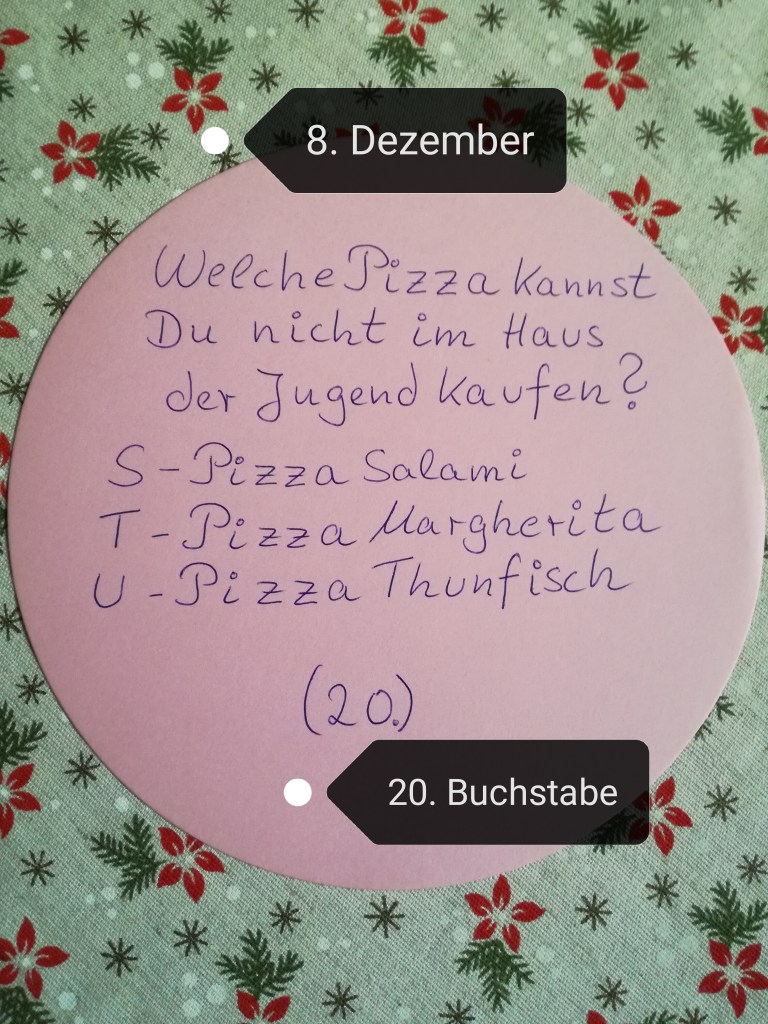 8. Dezember
Welche Pizza kannst
Du nicht im Haus
der Jugend kaufen?
S - Pizza Salami
T - Pizza Margherita
U - Pizza Thunfisch
(20.)
20. Buchstabe